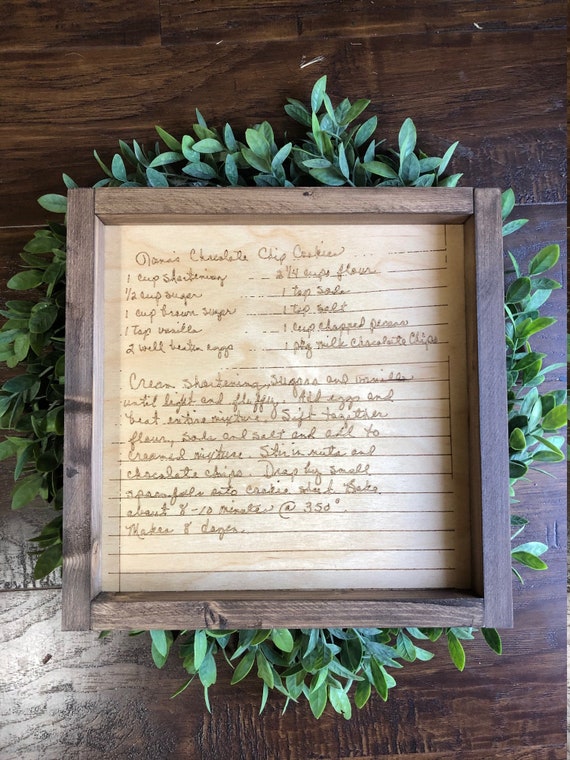 Nana's Chocolate Chip Cookies
1 cup shortening 2 1/4 cups flour
1/2 cup sugar 1 tsp soda
1 cup brown sugar 1 tsp salt
1 tsp vanilla 1 cup chopped pecans
2 well beaten eggs 1 pkg milk Chocolate Chips
Cream shortening, sugars and vanilla
until light and fluffy. Add eggs and
beat entire mixture. Sift together
flour, soda and salt and add to
creamed mixture. Stir in nuts and
chocolate chips. Drop by small
spoonfuls onto cookie sheet. Bake
about 8-10 minutes @ 350°
Makes 8 dozen.